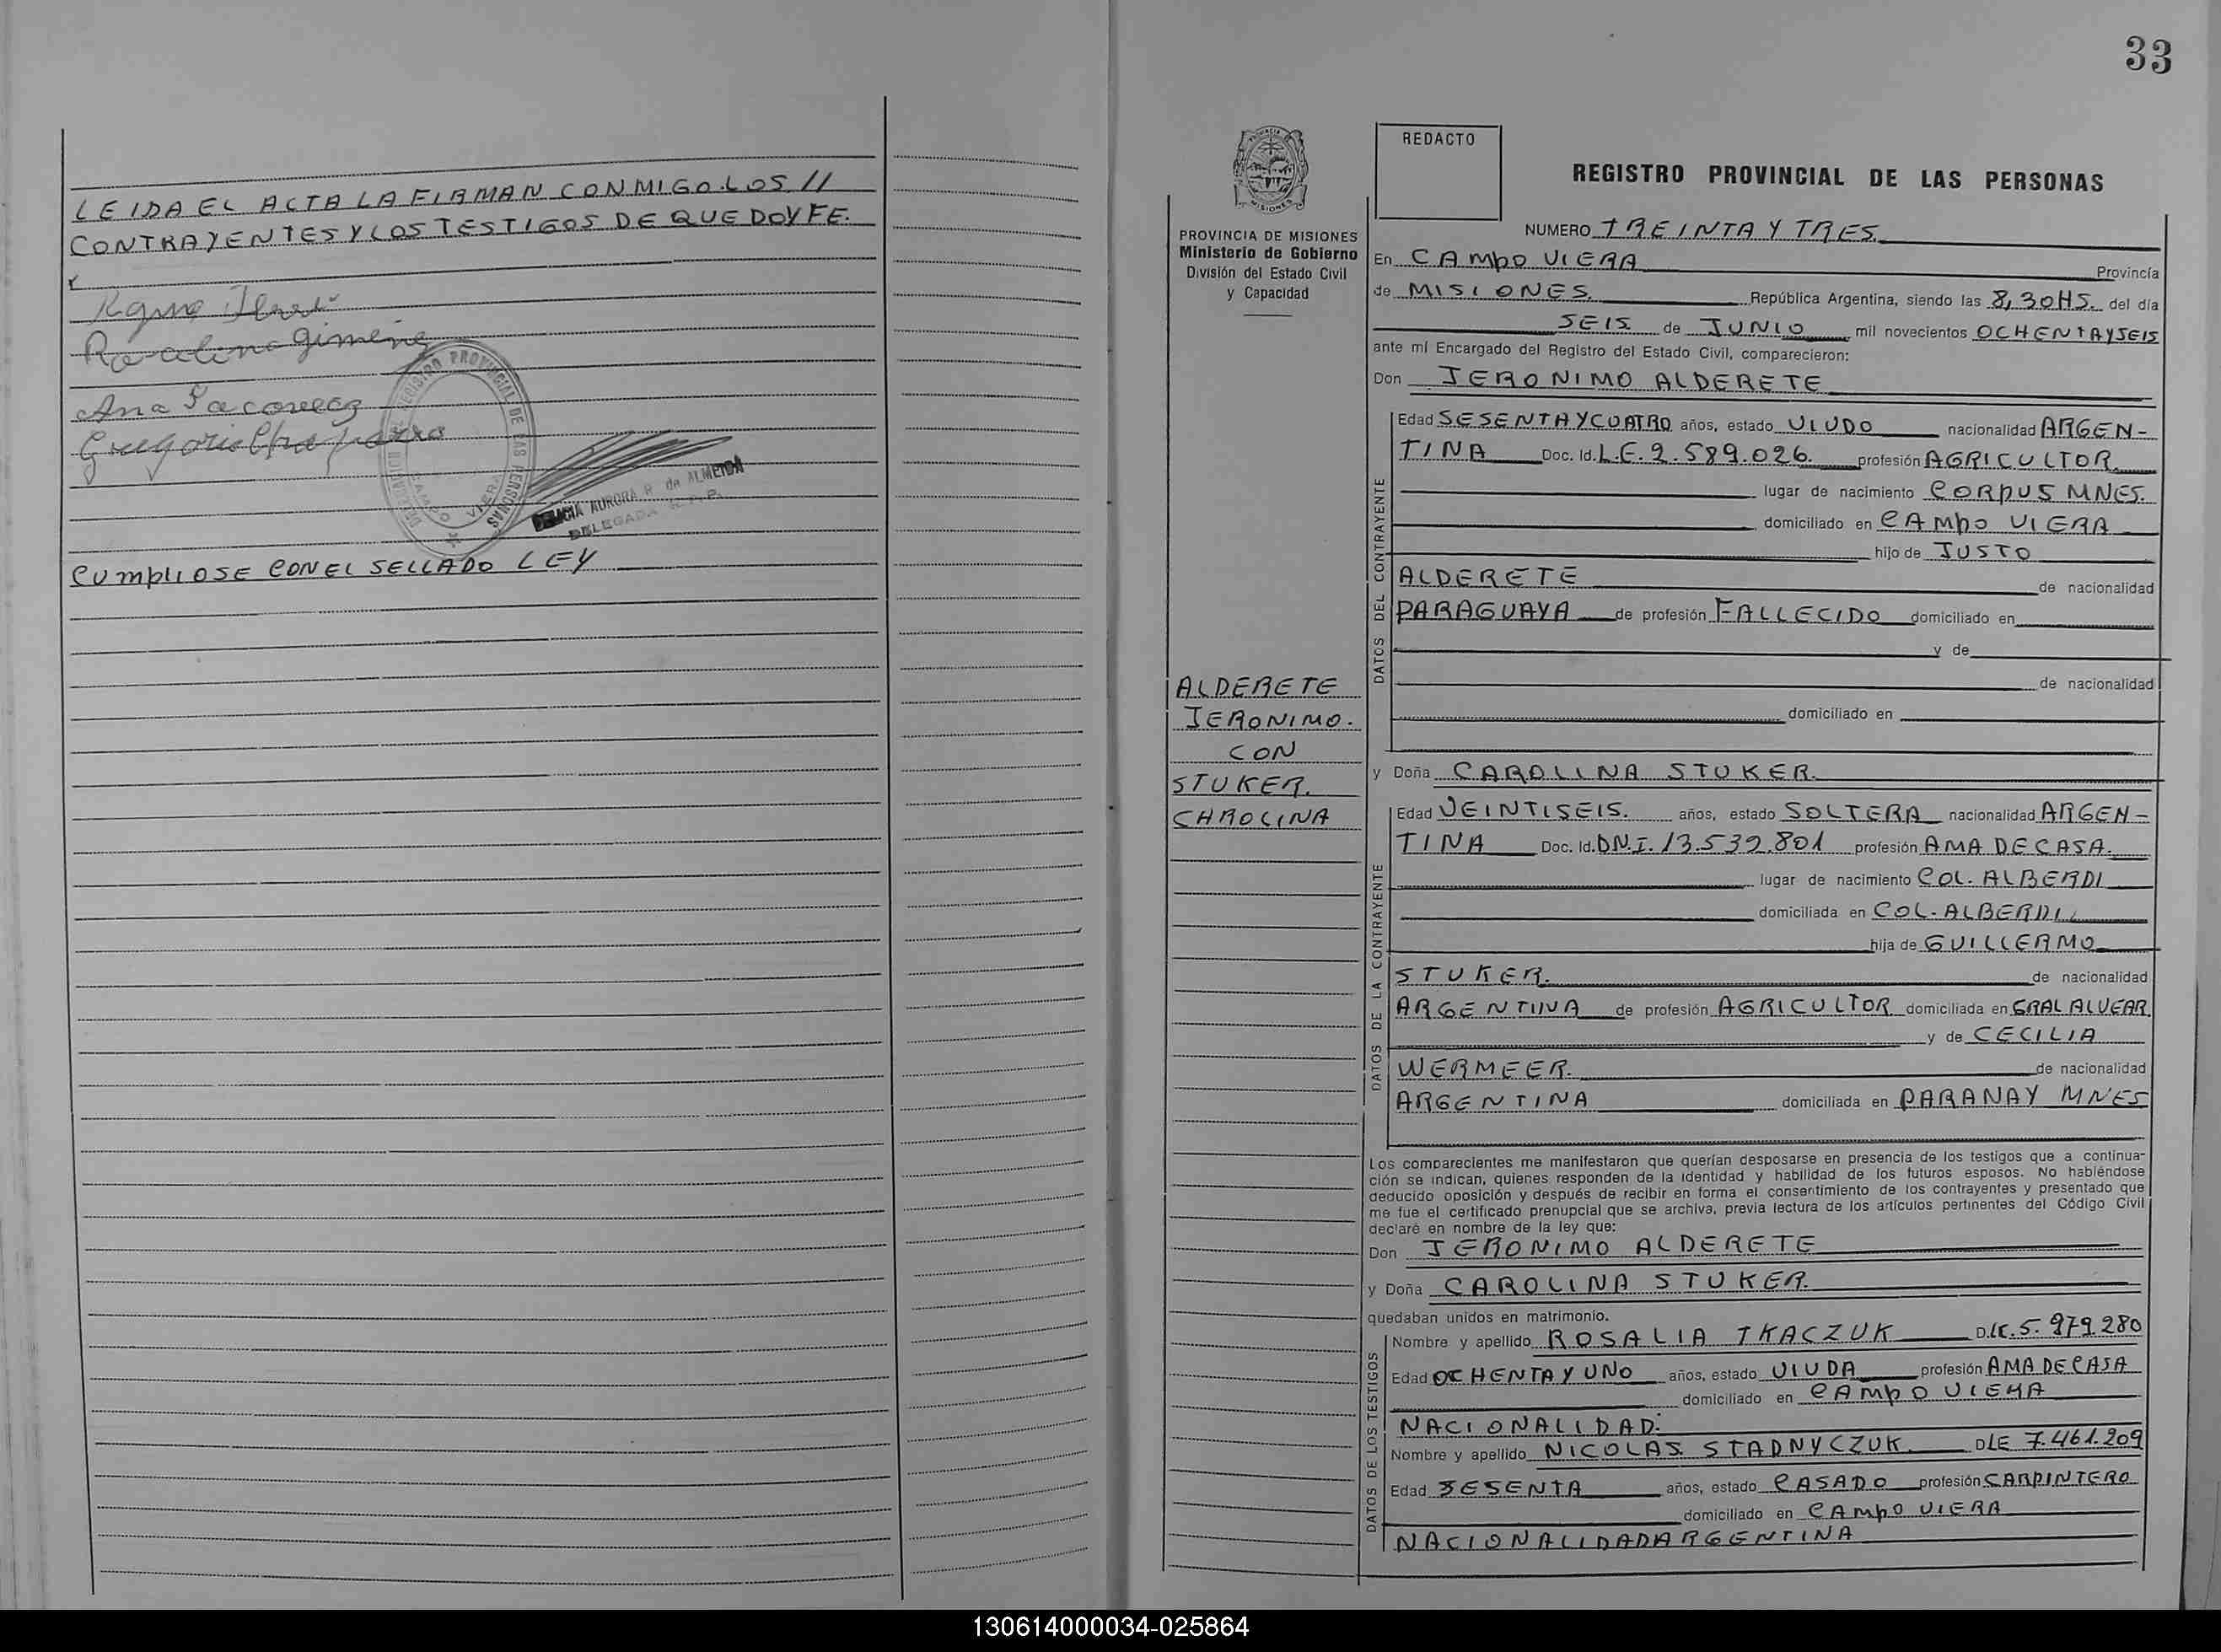 LEIDA EL ACTA LA FIRMAN CONMIGO LOS //
CONTRAYENTES Y LOS TESTIGOS DE QUE DOY FE.
Rosalina Gimene
Ana
Gregorio
DELEGACION REGISTRO PROVINCIAL DE LAS PERSONAS
CAMPO VIERA
DELICIA AURORA R. de ALMEIDA
DELEGADA R.P.P.
CUMPLIOSE CON EL SELLADO LEY
33
PROVINCIA DE MISIONES
Ministerio de Gobierno
División del Estado Civil
y Capacidad
ALDERETE
JERONIMO.
CON
STUKER.
CAROLINA
REDACTO
REGISTRO PROVINCIAL DE LAS PERSONAS
NUMERO TREINTA Y TRES.
En CAMPO VIERA Provincia
de MISIONES. República Argentina, siendo las 8,30HS. del día
SEIS de JUNIO mil novecientos OCHENTAYSEIS
ante mí Encargado del Registro del Estado Civil, comparecieron:
Don JERONIMO ALDERETE
DATOS DEL CONTRAYENTE
Edad SESENTAYCUATRO años, estado VIUDO nacionalidad ARGEN-
TINA Doc. Id. L.E. 2.589.026. profesión AGRICULTOR.
lugar de nacimiento CORPUS MNES.
domiciliado en CAMPO VIERA
hijo de JUSTO
ALDERETE de nacionalidad
PARAGUAYA de profesión FALLECIDO domiciliado en
y de
de nacionalidad
domiciliado en
y Doña CAROLINA STUKER.
DATOS DE LA CONTRAYENTE
Edad VEINTISEIS. años, estado SOLTERA nacionalidad ARGEN-
TINA Doc. Id. DN.I. 13.532.801 profesión AMA DE CASA.
lugar de nacimiento COL. ALBERDI
domiciliada en COL. ALBERDI.
hija de GUILLERMO
STUKER. de nacionalidad
ARGENTINA de profesión AGRICULTOR domiciliada en GRAL ALVEAR.
y de CECILIA
WERMEER. de nacionalidad
ARGENTINA domiciliada en PARANAY MNES
Los comparecientes me manifestaron que querían desposarse en presencia de los testigos que a continua-
ción se indican, quienes responden de la identidad y habilidad de los futuros esposos. No habiéndose
deducido oposición y después de recibir en forma el consentimiento de los contrayentes y presentado que
me fue el certificado prenupcial que se archiva, previa lectura de los artículos pertinentes del Código Civil
declaré en nombre de la ley que:
Don JERONIMO ALDERETE
y Doña CAROLINA STUKER.
quedaban unidos en matrimonio.
DATOS DE LOS TESTIGOS
Nombre y apellido ROSALIA TKACZUK 5.979.280
Edad OCHENTA Y UNO años, estado VIUDA profesión AMA DE CASA
domiciliado en CAMPO VIERA
NACIONALIDAD:
Nombre y apellido NICOLAS STADNYCZUK. DLE 7.461.209
Edad SESENTA años, estado CASADO profesión CARPINTERO
domiciliado en CAMPO VIERA
NACIONALIDAD ARGENTINA
130614000034-025864